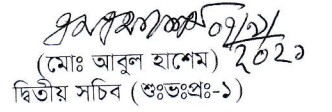 ০৭/১/২০২১
(মোঃ আবুল হাশেম)
দ্বিতীয় সচিব (শুঃভঃপ্রঃ-১)